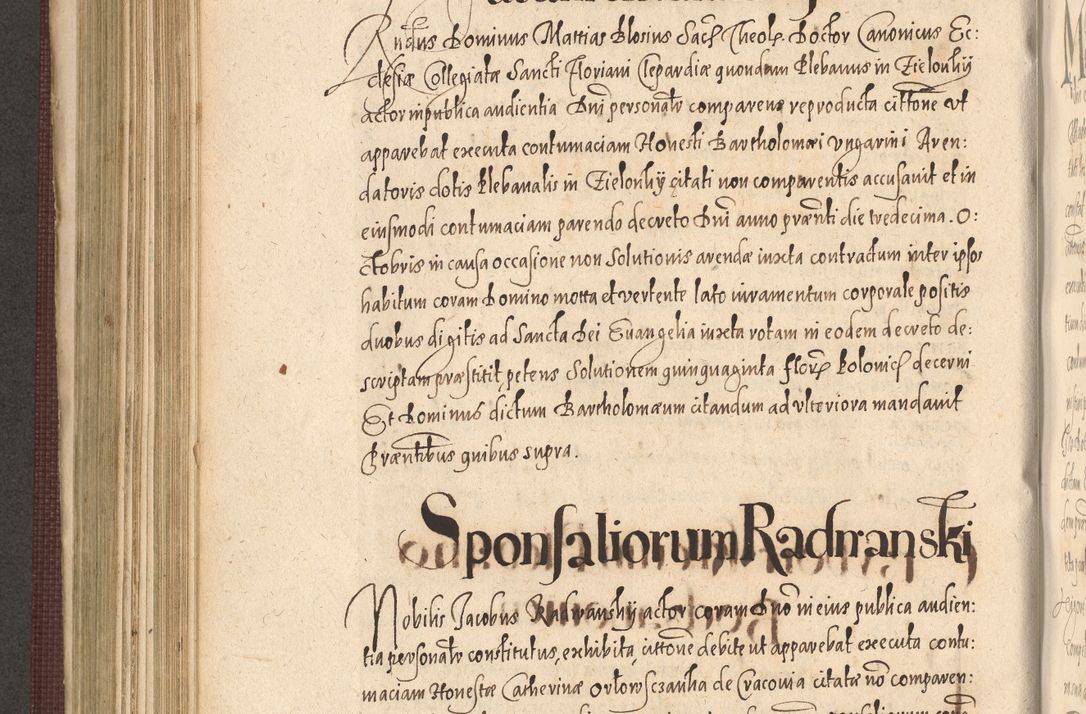 Rndus Dominus Mattias Blosius Sacrę Theolę Doctor Canonicus Ec:
clesiæ Collegiatæ Sancti Floriani Clepardiæ quondam Plebanus in Zielonky
actor in publica audientia Dni personalr comparens reproducta cittone ut
apparebat executa contumaciam Honesti Bartholomæi Ungarini Aren:
datoris dotis Plebanalis in Zielonky citati non comparentis accusavit et in
eiusmodi contumaciam parendo decreto Dni anno præsnti die tredecima O:
ctobris in causa occasione non Solutionis arendæ iuxta contractum inter ipsos
habitum coram Domino motta et vertente lato iuramentum corporale positis
duobus digitis ad Sancta Dei Evangelia iuxta rotam in eodem decreto de:
scriptam præstitit, petens Solutionem quinquaginta florę Polonicę decerni
Et Dominus dictum Bartholomæum citandum ad ulteriora mandavit
Præntibus quibus supra.
Sponsaliorum Radwanski
Nobilis Jacobus Radwansky actor coram Dno in eius publica audien:
tia personalr constitutus, exhibita cittone debite ut apparebat executa contu:
maciam Honestæ Catherinæ Orlowsczanka de Cracovia citatæ no comparen: